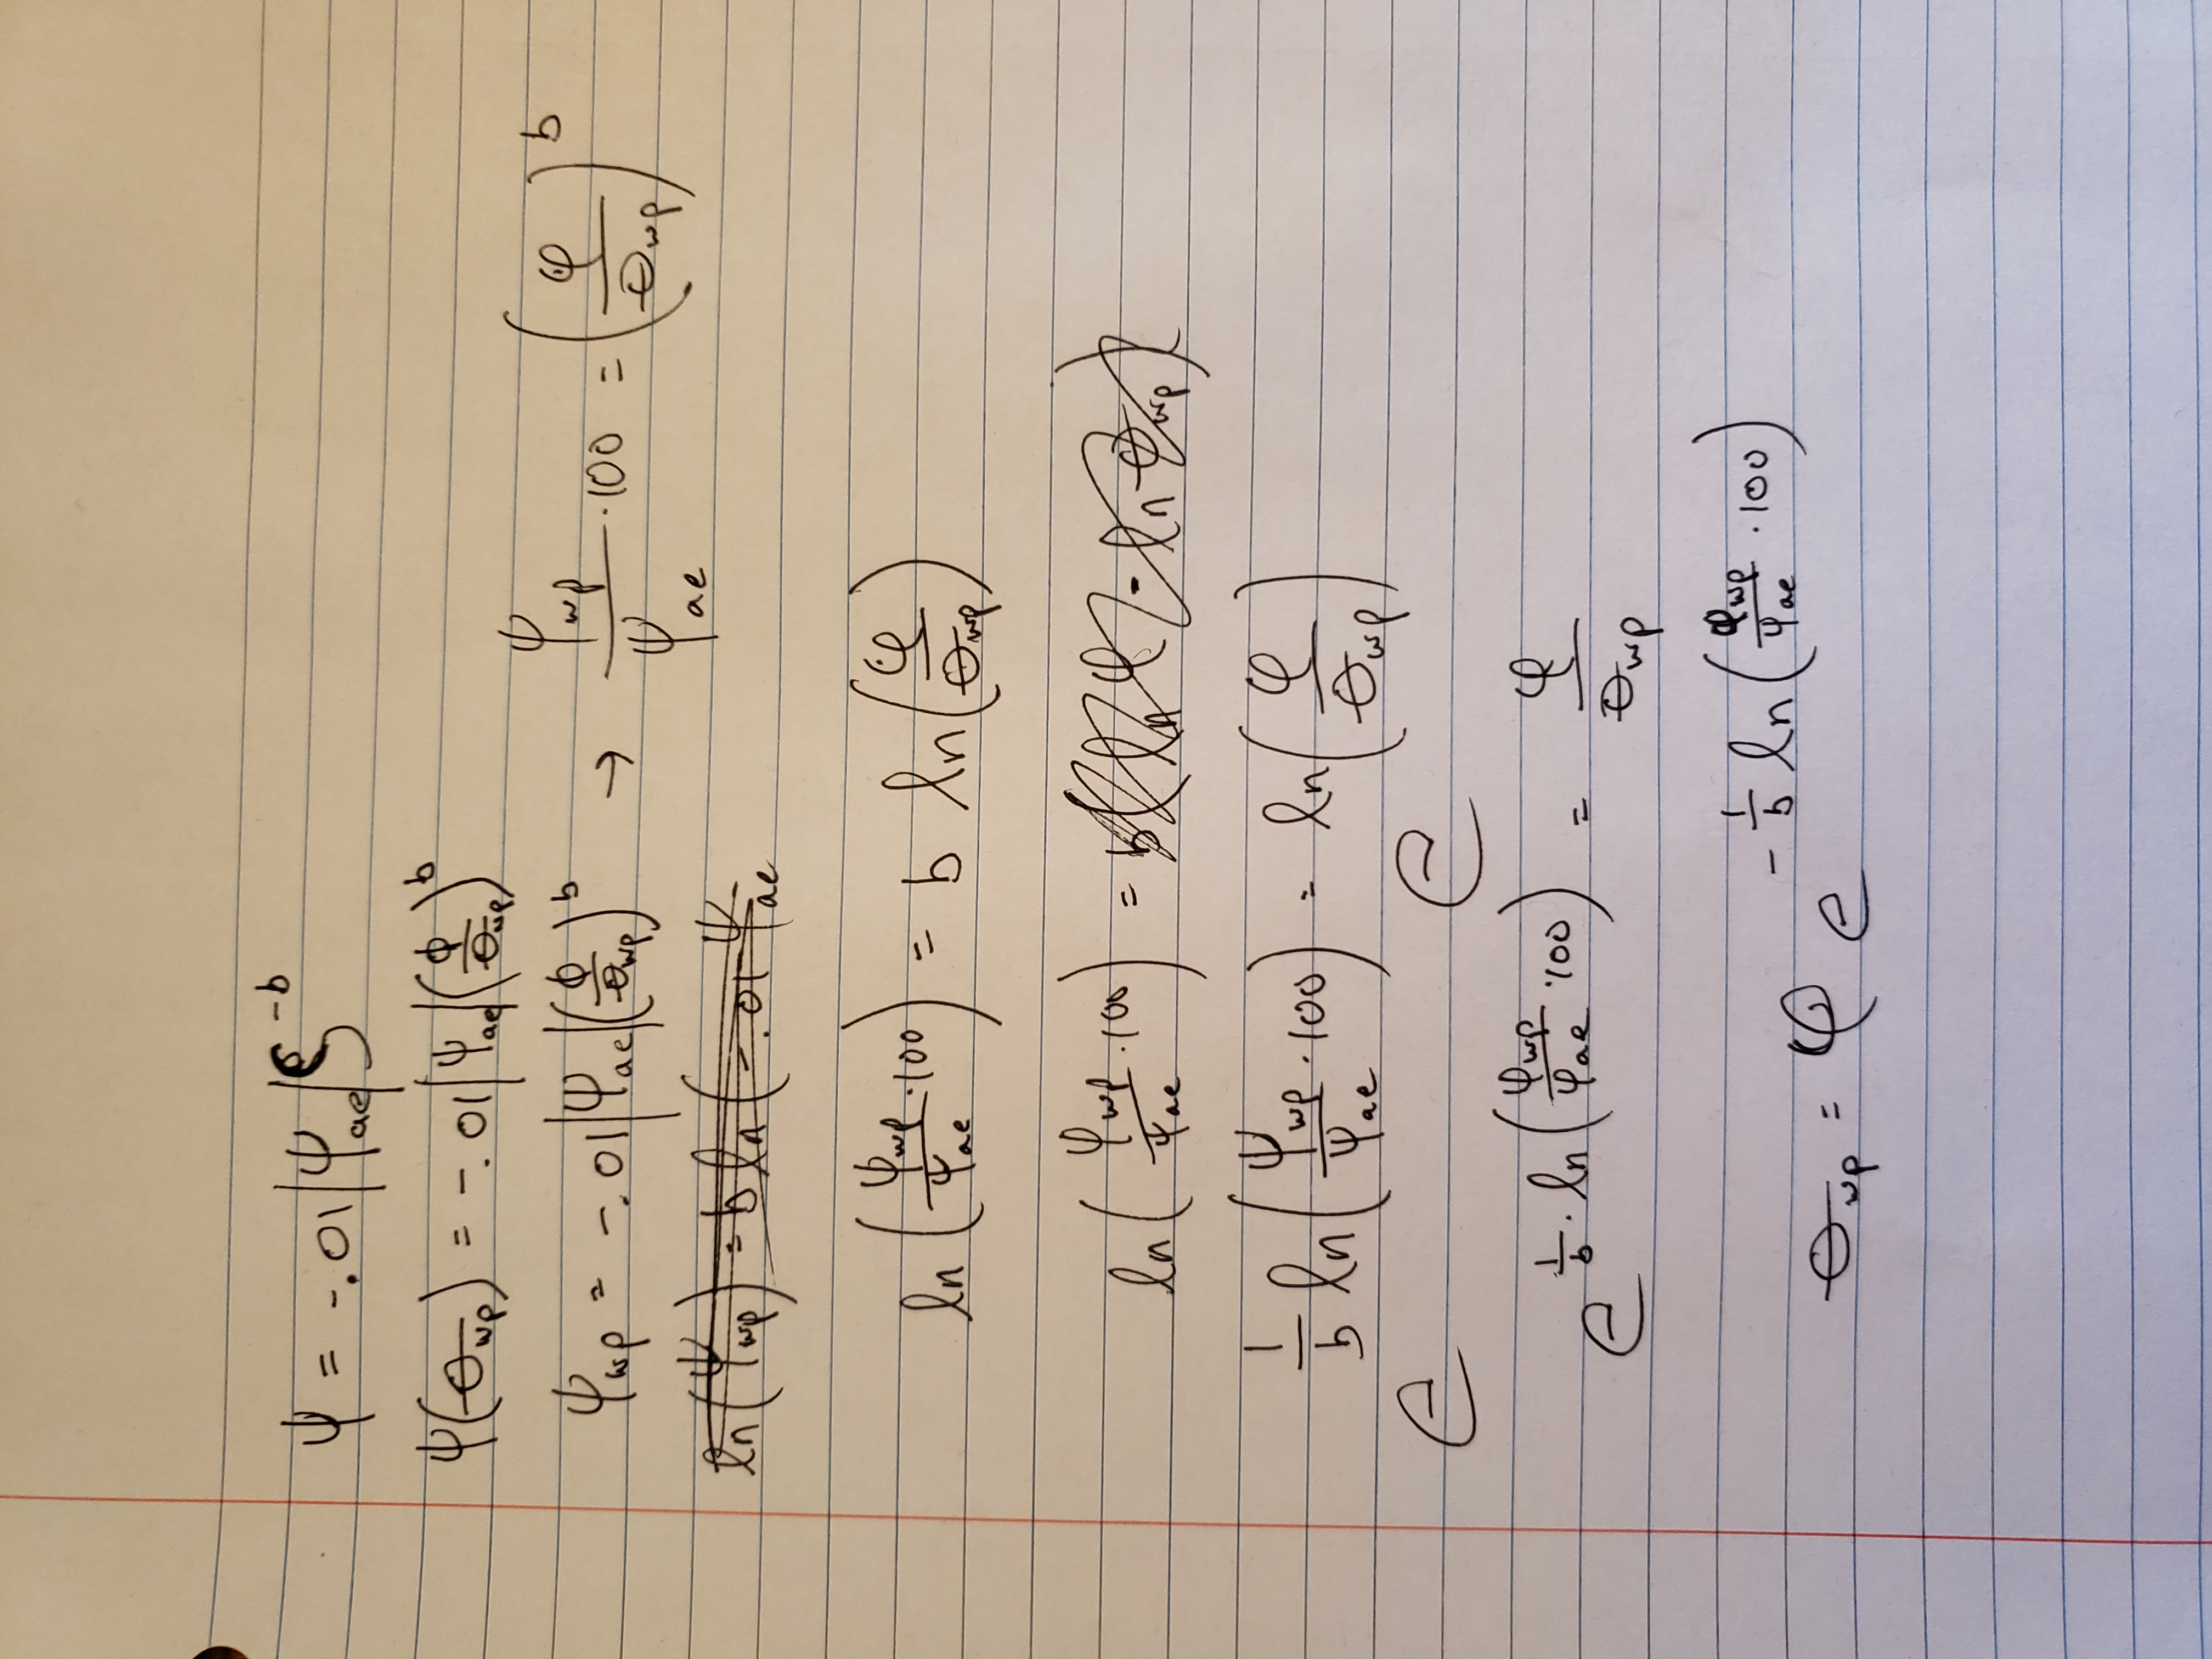 ψ = -.01|ψae|S^-b
ψ(θwp) = -.01|ψae|(ϕ/θwp)^b
ψwp = -.01|ψae|(ϕ/θwp)^b → ψwp/ψae · 100 = (φ/θwp)^b
ln(ψwp) = b ln(-.01 ψae
ln(ψwp/ψae · 100) = b ln(φ/θwp)
ln(ψwp/ψae · 100) = b(ln φ - ln θwp)
e^(1/b ln(ψwp/ψae · 100)) = e^(ln(φ/θwp))
e^(1/b · ln(ψwp/ψae · 100)) = φ/θwp
θwp = φ e^(-1/b ln(ψwp/ψae · 100))